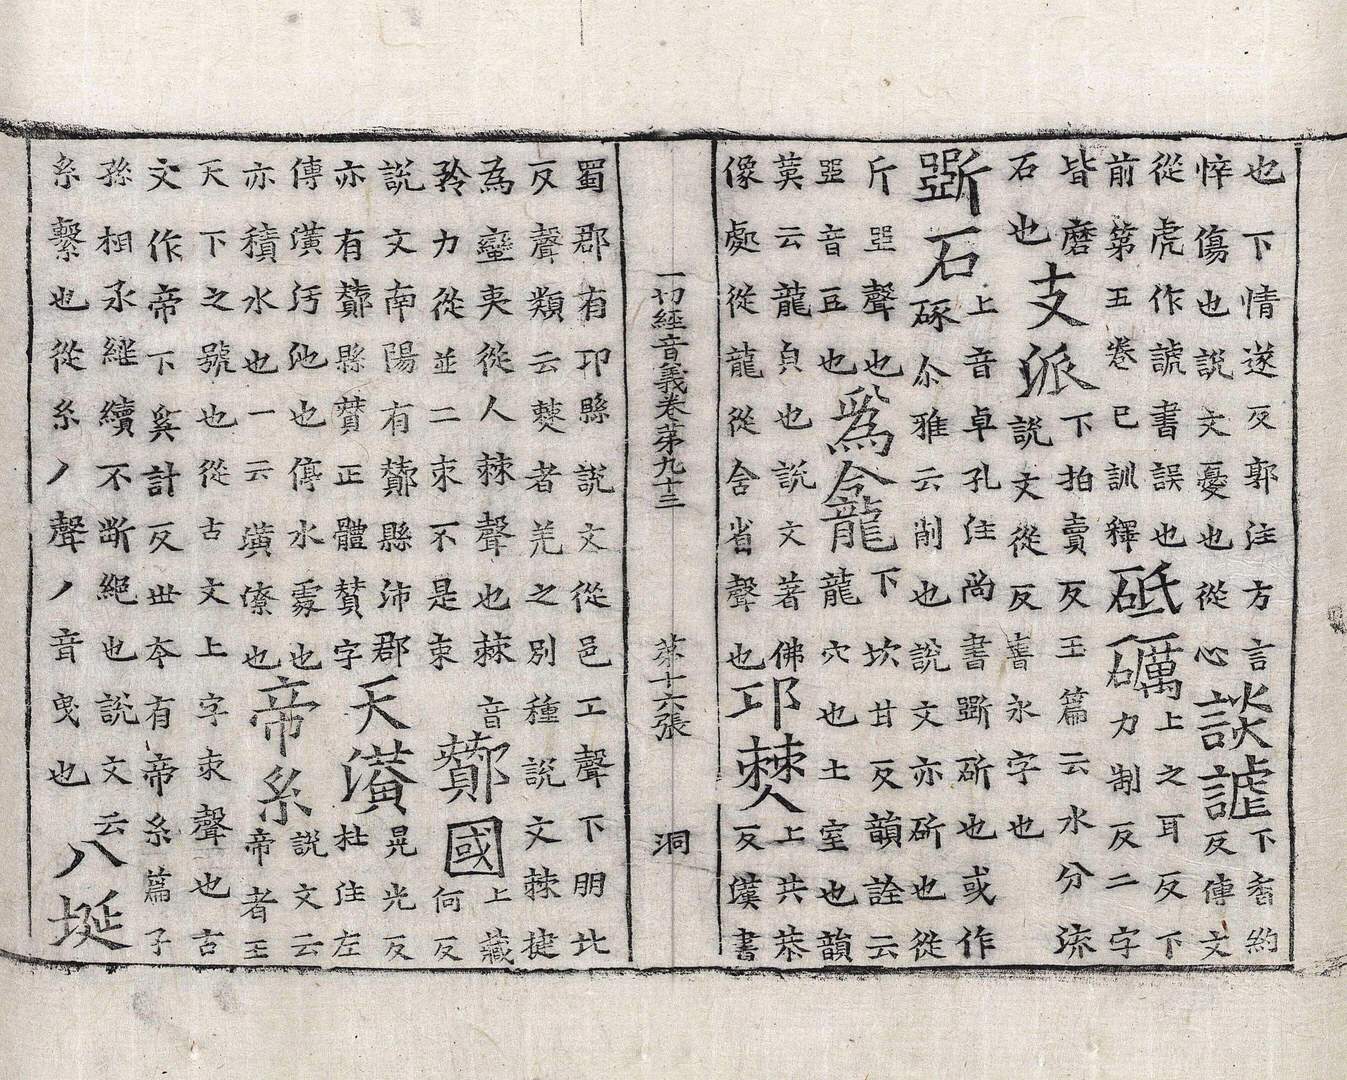 也下情遂反郭注方言
悴傷也說文憂也從心
談謔
下香約
反傳文
從虎作謔書誤也
前第五卷已訓釋
砥礪
上之耳反下
力制反二字
皆磨
石也
支派
下拍賣反王篇云水分流
說文從反書永字也
斲石
上音卓孔注尚書斲斫也或作
琢尒雅云削也說文亦斫也從
斤㔁聲也
㔁音豆也
為龕
下坎甘反韻詮云
龍穴也土室也韻
英云龍貞也說文著佛
像處從龍從含省聲也
邛僰
上共恭
反漢書
一切經音義卷第九十三 第十六張 洞
蜀郡有邛縣說文從邑工聲下朋北
反聲類云僰者羌之別種說文棘揵
為蠻夷從人棘聲也棘音
矜力從並二朿不是束
酇國
上藏
何反
說文南陽有酇縣沛郡
亦有酇縣贊正體賛字
天潢
晃光反
杜注左
傳潢汙池也停水處也
亦積水也一云潢潦也
帝系
說文云
帝者王
天下之號也從古文上字朿聲也古
文作帝下奚計反世本有帝系篇子
孫相承継續不斷絕也說文云
系繫也從糸丿聲丿音曳也
八埏